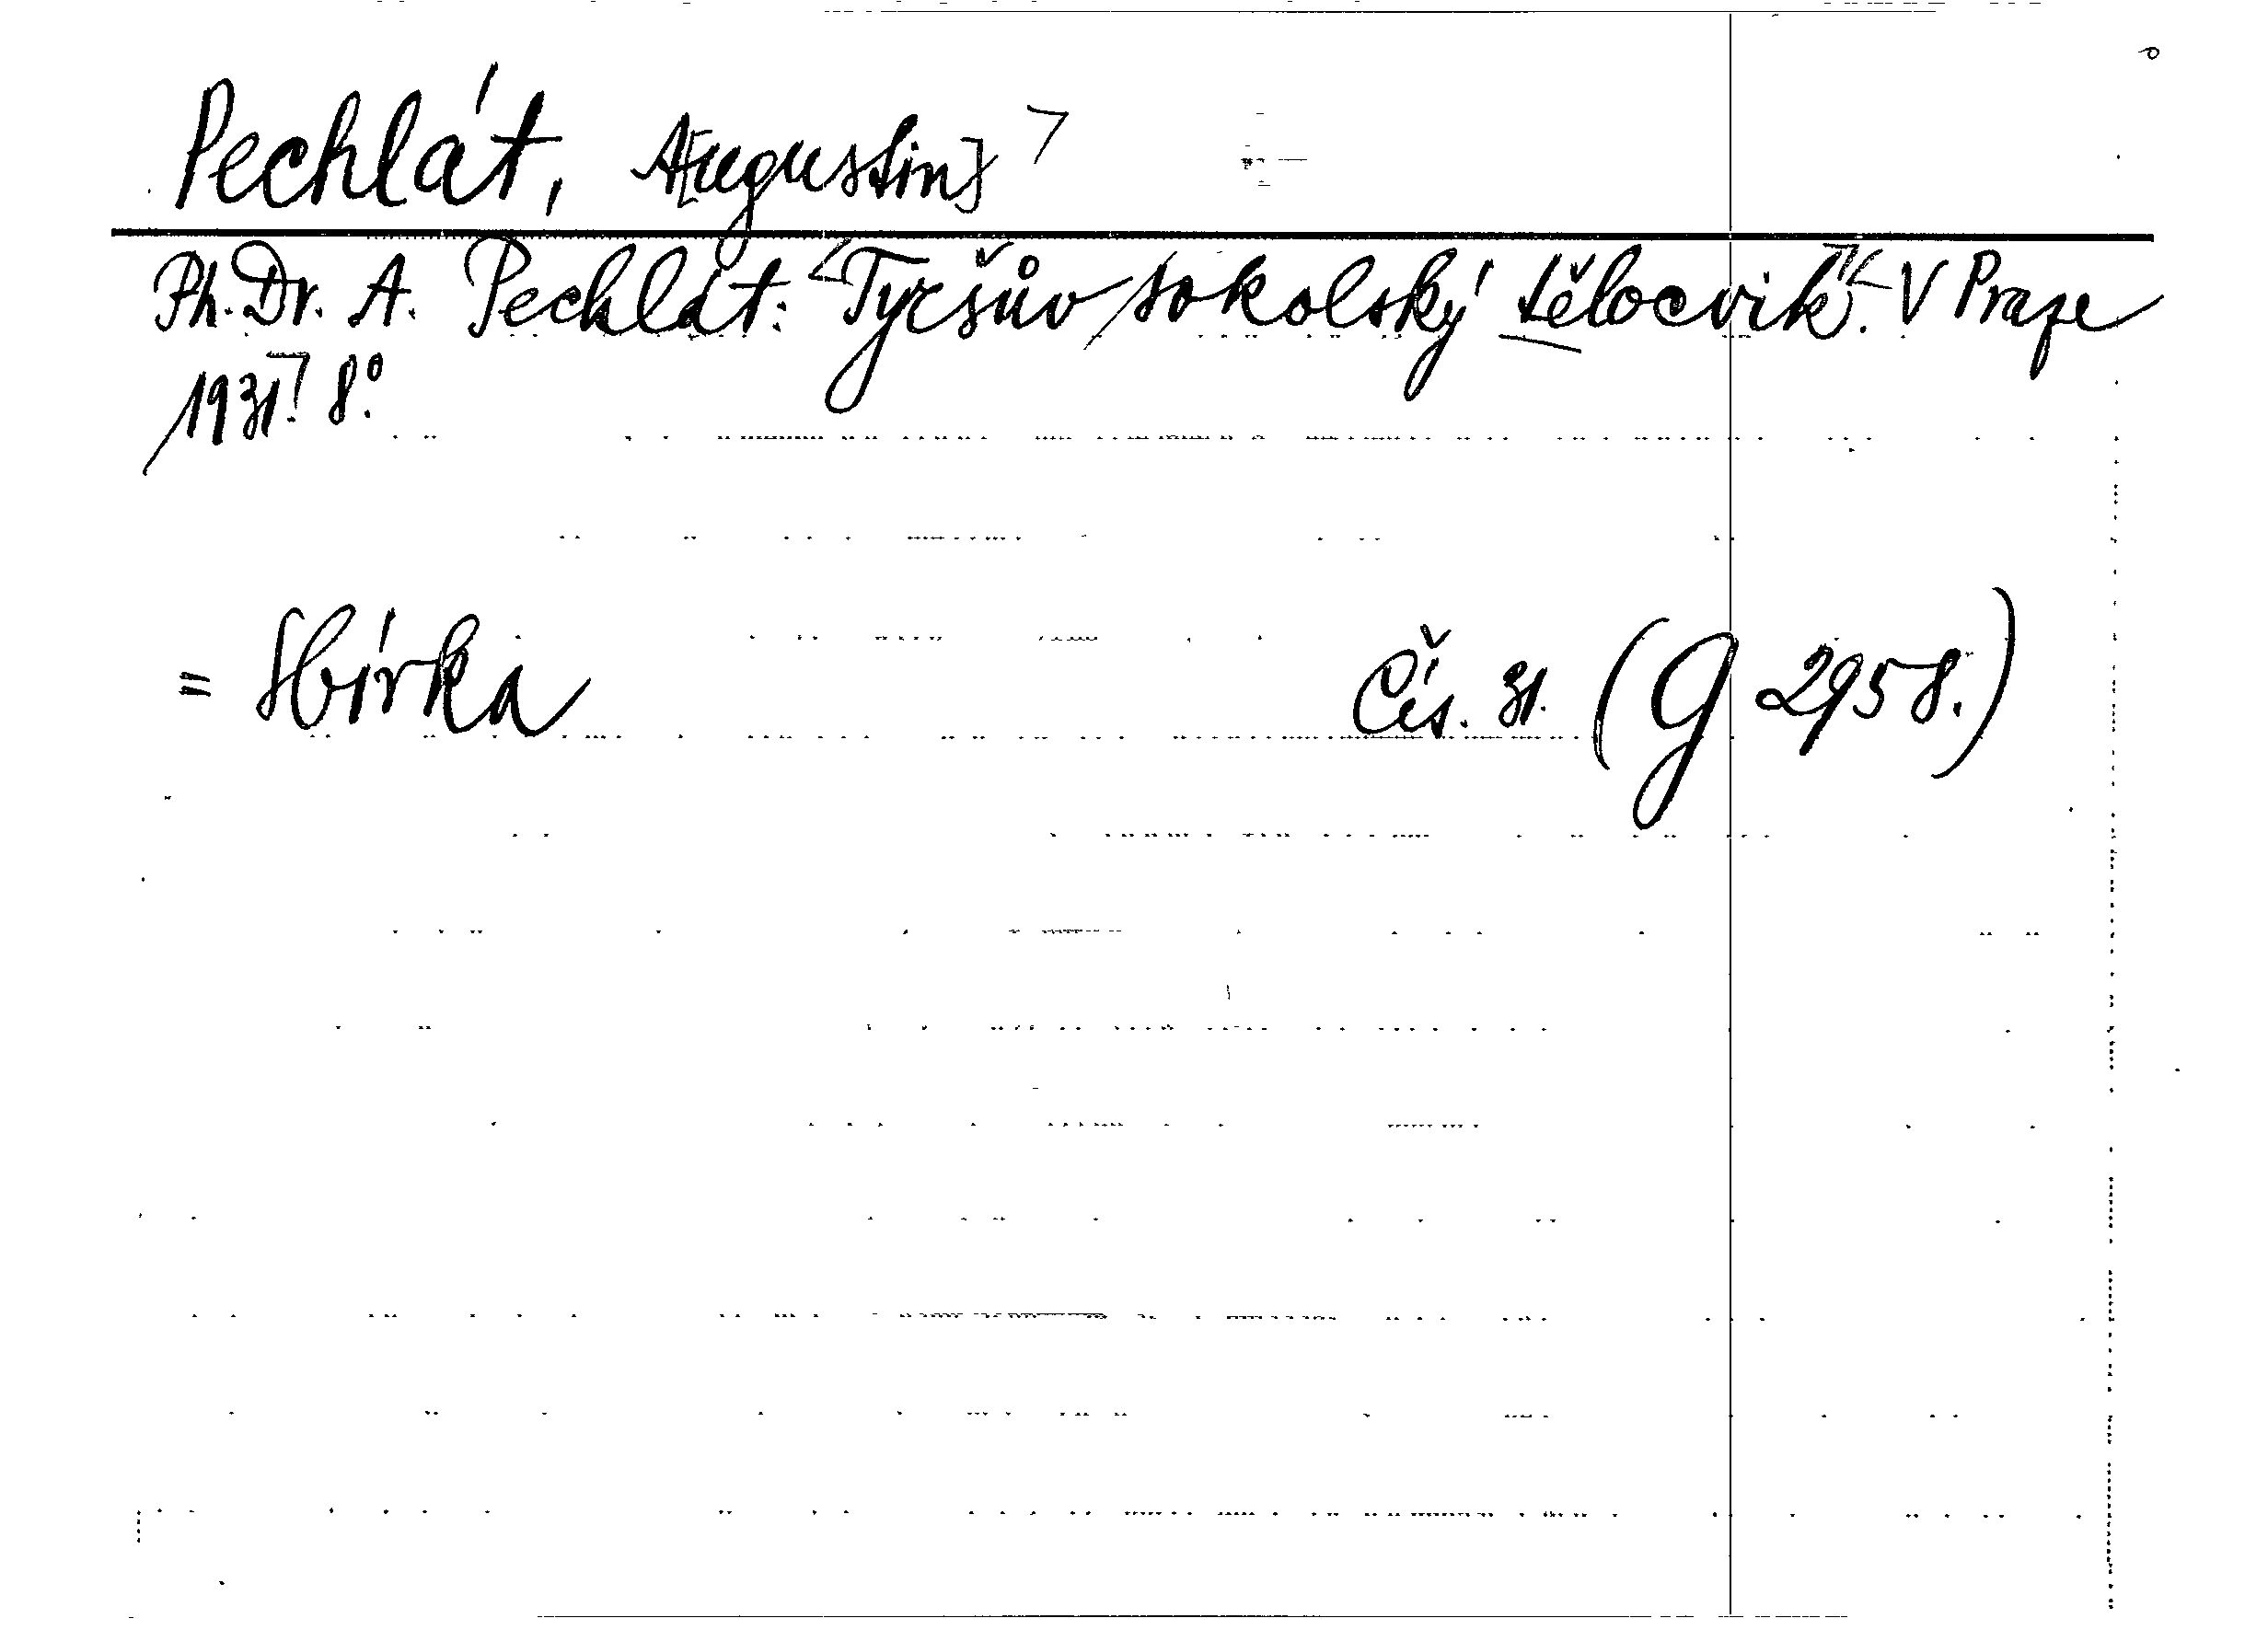 Pechlát, A[ugustin]
Ph. Dr. A. Pechlát: Tyršův sokolský tělocvik. V Praze
1931. 8°.
= Sbírka Čís. 31. (G 2958.)